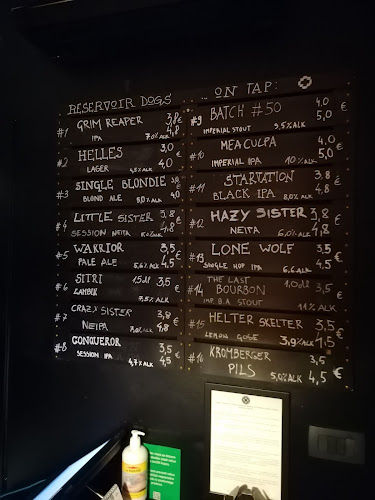 RESERVOIR DOGS
#1 GRIM REAPER 3,8 €
IPA 7.0% ALK 4,8
#2 HELLES 3,0 €
LAGER 4,5% ALK 4,0
#3 SINGLE BLONDIE 3,0 €
BLOND ALE 5,0% ALK 4,0
#4 LITTLE SISTER 3,8 €
SESSION NEIPA 4,8
#5 WARRIOR 3,5 €
PALE ALE 5.6% ALK 4,5
#6 SITRI
LAMBIK 5.5% ALK
#7 CRAZY SISTER 3,8 €
NEIPA 4,8
#8 CONQUEROR 3,5 €
SESSION IPA 4,7% ALK 4,5
ON TAP:
#9 BATCH #50 4,0 €
IMPERIAL STOUT 9,5% ALK 5,0
#10 MEA CULPA 4,0 €
IMPERIAL IPA 10% ALK 5,0
#11 STARVATION 3,8 €
BLACK IPA 8,0% ALK 4,8
#12 HAZY SISTER 3,8 €
NEIPA 6,0% ALK 4,8
#13 LONE WOLF 3,5 €
SINGLE HOP IPA 6,6% ALK 4,5
#14 THE LAST
BOURBON 3,5 €
IMP. B.A. STOUT 11% ALK
#15 HELTER SKELTER 3,5 €
LEMON GOSE 3,9% ALK 4,5
#16 KROMBERGER 3,5 €
PILS 5,0% ALK 4,5